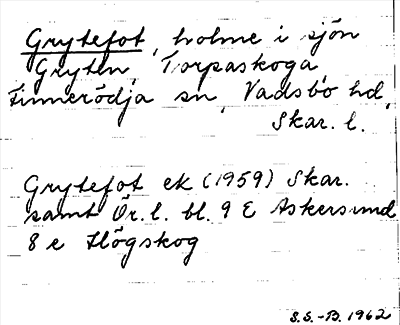 Grytefot, holme i sjön
Gryten, Torpaskoga,
Finnerödja sn, Vadsbo hd,
Skar. l.
Grytefot ek (1959) Skar.
samt Ör. l. bl. 9 E Askersund
8 e Högskog
S.S.-B. 1962